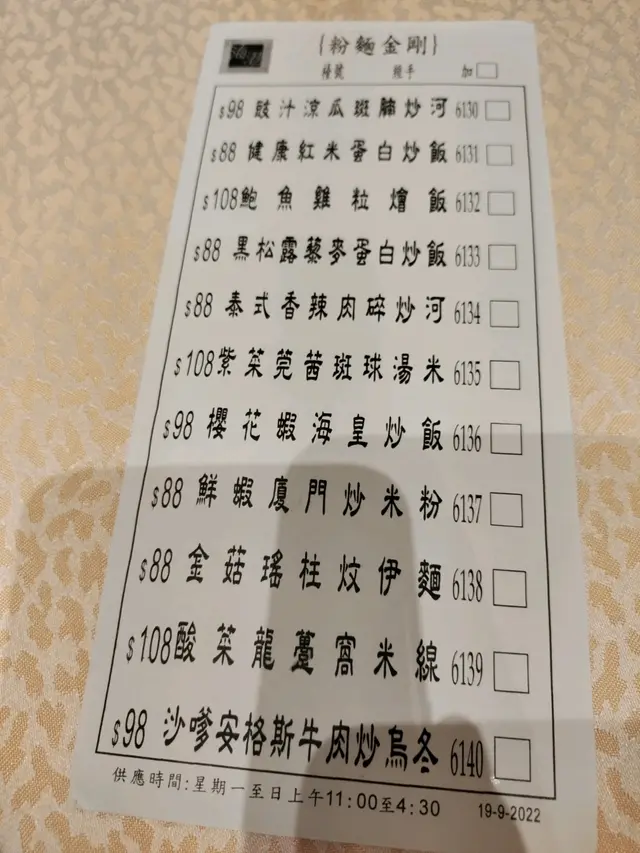 {粉麵金剛}
檯號 經手 加
$98 豉汁涼瓜斑腩炒河 6130
$88 健康紅米蛋白炒飯 6131
$108鮑魚雞粒燴飯 6132
$88 黑松露藜麥蛋白炒飯 6133
$88 泰式香辣肉碎炒河 6134
$108紫菜莞茜斑球湯米 6135
$98 櫻花蝦海皇炒飯 6136
$88 鮮蝦廈門炒米粉 6137
$88 金菇瑤柱炆伊麵 6138
$108酸菜龍躉窩米線 6139
$98 沙嗲安格斯牛肉炒烏冬 6140
供應時間:星期一至日上午11:00至4:30
19-9-2022